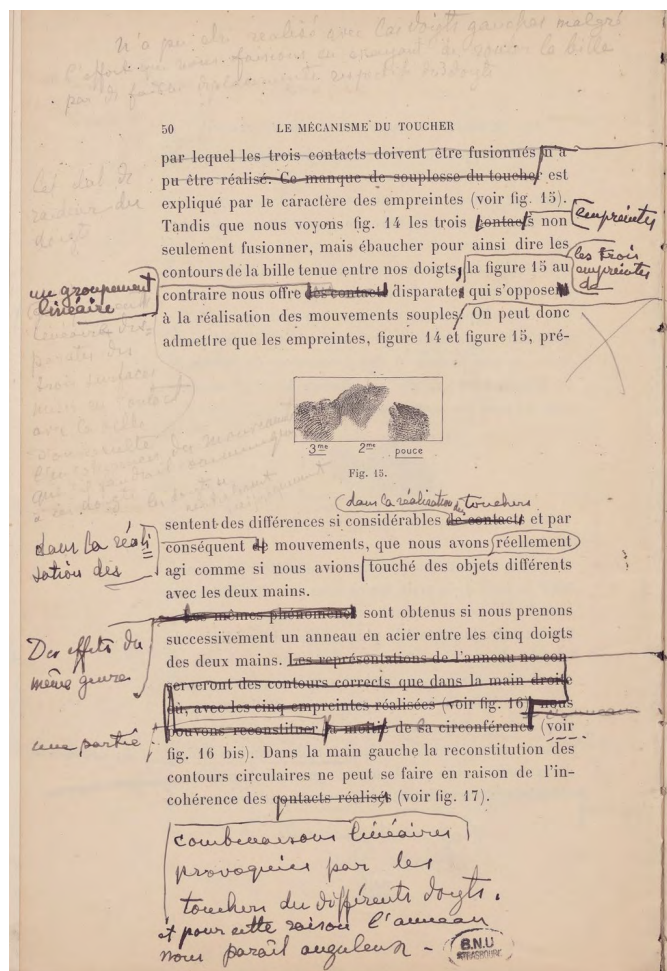 n'a pu être réalisé avec les doigts gauches malgré
l'effort que nous faisions en
50 LE MÉCANISME DU TOUCHER
par lequel les trois contacts doivent être fusionnés n'a
pu être réalisé. Ce manque de souplesse du toucher est
expliqué par le caractère des empreintes (voir fig. 15).
Tandis que nous voyons fig. 14 les trois contacts non
empreintes
seulement fusionner, mais ébaucher pour ainsi dire les
contours de la bille tenue entre nos doigts, la figure 15 au
les trois
empreintes
de
un groupement
linéaire
contraire nous offre des contacts disparates qui s'opposent
à la réalisation des mouvements souples. On peut donc
admettre que les empreintes, figure 14 et figure 15, pré-
3me 2me pouce
Fig. 15.
dans la réalisation des touchers
sentent des différences si considérables de contacts et par
dans la réali
sation des
conséquent de mouvements, que nous avons réellement
agi comme si nous avions touché des objets différents
avec les deux mains.
Les mêmes phénomènes sont obtenus si nous prenons
Des effets du
même genre
successivement un anneau en acier entre les cinq doigts
des deux mains. Les représentations de l'anneau ne con
serveront des contours corrects que dans la main droite
où, avec les cinq empreintes réalisées (voir fig. 16) nous
une partie
pouvons reconstituer la moitié de sa circonférence (voir
fig. 16 bis). Dans la main gauche la reconstitution des
contours circulaires ne peut se faire en raison de l'in-
cohérence des contacts réalisés (voir fig. 17).
combinaisons linéaires
provoquées par les
touchers du différents doigts.
et pour cette raison l'anneau
nous paraît anguleux -
B.N.U
STRASBOURG